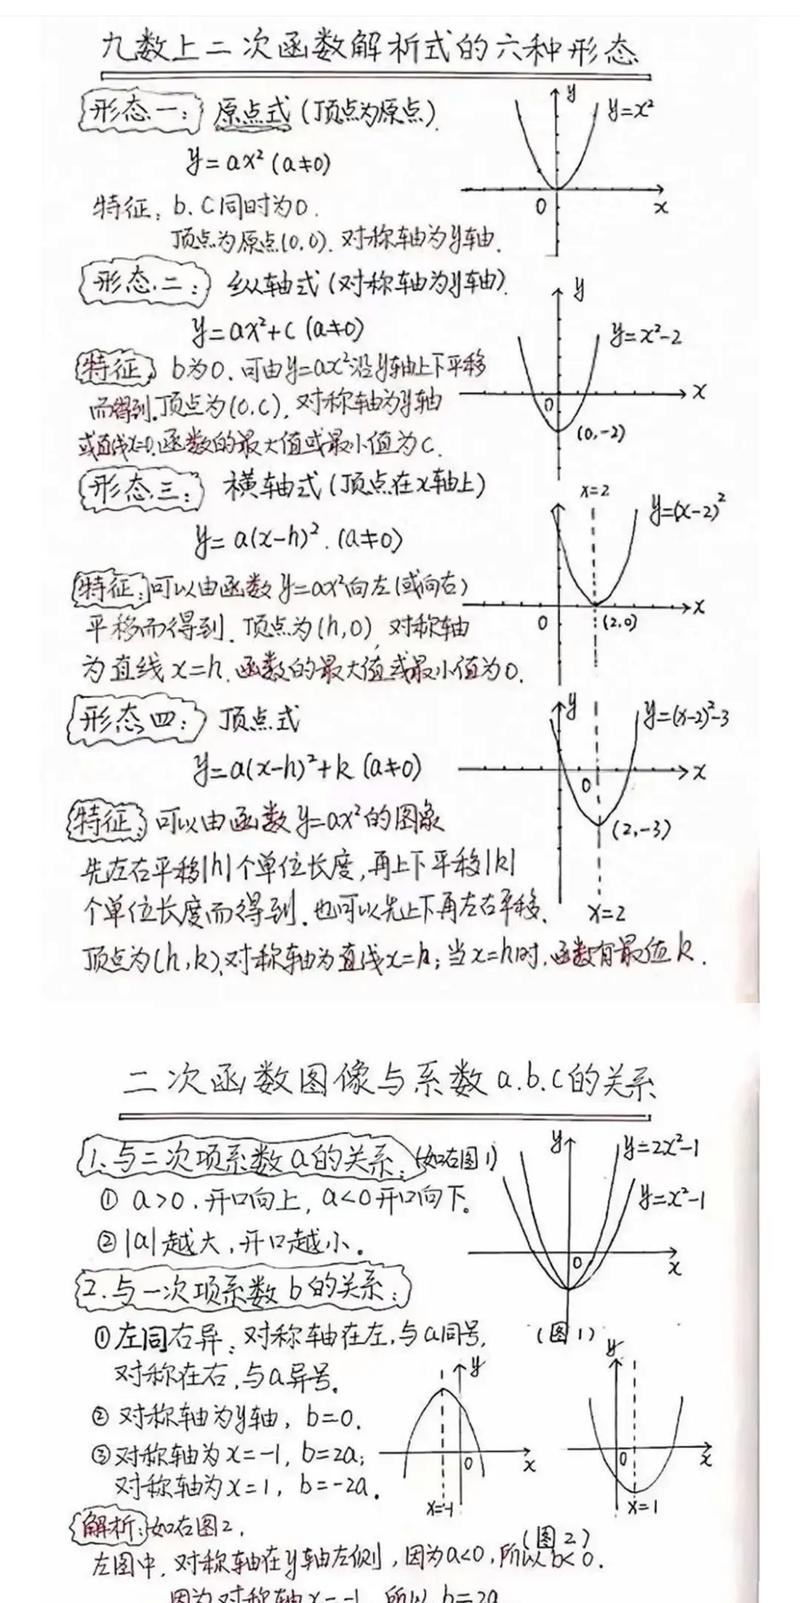 九数上二次函数解析式的六种形态
形态一: 原点式(顶点为原点).
y=ax²(a≠0)
特征: b.c同时为0.
顶点为原点(0,0). 对称轴为y轴.
y
y=x²
0
x
形态二: 纵轴式(对称轴为y轴).
y=ax²+c (a≠0)
特征 b为0. 可由y=ax²沿y轴上下平移
而得到.顶点为(0,c). 对称轴为y轴
或直线x=0.函数的最大值或最小值为c.
y
y=x²-2
0
x
(0,-2)
形态三: 横轴式(顶点在x轴上)
y=a(x-h)².(a≠0)
特征:可以由函数y=ax²向左(或向右)
平移而得到. 顶点为(h,0) 对称轴
为直线x=h.函数的最大值或最小值为0.
x=2
y=(x-2)²
0
(2,0)
x
形态四: 顶点式
y=a(x-h)²+k (a≠0)
特征: 可以由函数y=ax²的图象
先左右平移|h|个单位长度,再上下平移|k|
个单位长度而得到.也可以先上下再左右平移.
顶点为(h,k).对称轴为直线x=h;当x=h时.函数有最值k.
y
y=(x-2)²-3
x
0
(2,-3)
x=2
二次函数图像与系数a.b.c的关系
1.与二次项系数a的关系:(如右图1)
① a>0.开口向上, a<0开口向下。
②|a|越大,开口越小。
y
y=2x²-1
y=x²-1
0
x
(图1)
2.与一次项系数b的关系:
①左同右异: 对称轴在左,与a同号,
对称在右,与a异号.
② 对称轴为y轴, b=0.
③对称轴为x=-1, b=2a;
对称轴为x=1, b=-2a.
y
0
x
x=-1
y
0
x
x=1
(图2)
解析:如右图2,
左图中,对称轴在y轴左侧,因为a<0,所以b<0.
因为对称轴x=-1, 所以b=2a